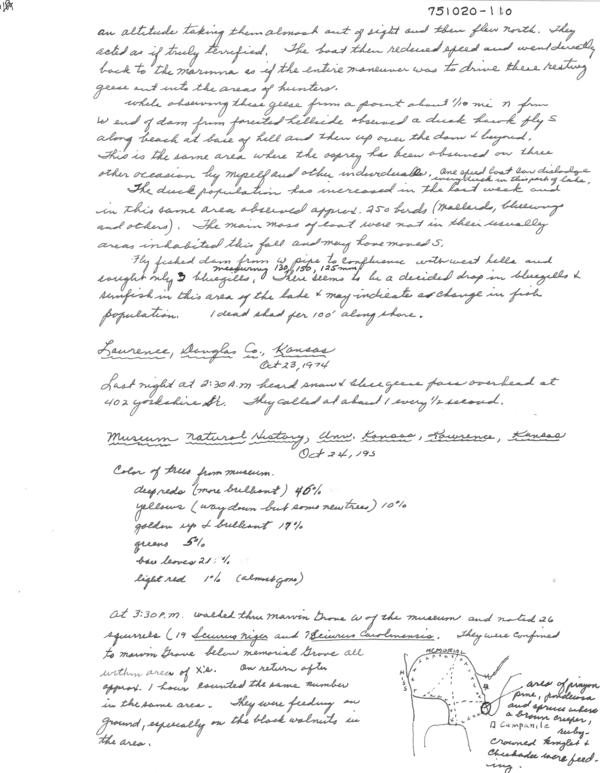 751020-110
an altitude taking them almost out of sight and then flew north. They
acted as if truly terrified. The boat then reduced speed and went directly
back to the marina as if the entire maneuver was to drive these resting
geese out into the areas of hunters.
While observing these geese from a point about 1/10 mi n from
W end of dam from forested hillside observed a duck hawk fly S
along beach at base of hill and then up over the dam & beyond.
This is the same area where the osprey has been observed on three
other occasion by myself and other individuals. One speed boat can dislodge
every duck in this part of lake.
The duck population has increased in the last week and
in this same area observed approx. 250 birds (mallards, bluewings
and others). The main mass of coot were not in their usually
areas inhabited this fall and may have moved S.
Fly fished dam from W pipe to confluence with west hills and
caught only 3 bluegills, measuring 120, 150, 125 mm. There seems to be a decided drop in bluegills &
sunfish in this area of the lake & may indicate a change in fish
population. 1 dead shad per 100' along shore.
Lawrence, Douglas Co., Kansas
Oct 23, 1974
Last night at 2:30 A.M heard snow & blue geese pass overhead at
402 Yorkshire Dr. They called at about 1 every 1/2 second.
Museum Natural History, Univ. Kansas, Lawrence, Kansas
Oct 24, 195
Color of trees from museum.
deep reds (more brilliant) 46%
yellows (way down but some new trees) 10%
golden up & brilliant 17%
greens 5%
bare leaves 21%
light red 1% (almost gone)
At 3:30 P.M. walked thru Marvin Grove W of the museum and noted 26
squirrels (19 Sciurus niger and 7 Sciurus carolinensis. They were confined
to Marvin Grove below Memorial Grove all
within area of X's. On return after
approx. 1 hour counted the same number
in the same area. They were feeding on
ground, especially on the black walnuts in
the area.
MEMORIAL
area of pinyon
pine, ponderosa
and spruce where
a brown creeper,
Campanile
ruby-
crowned kinglet &
chickadee were feed-
ing.